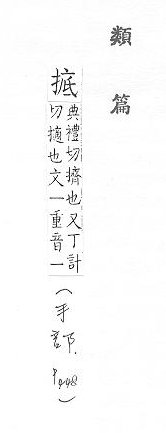 類篇
掋 典禮切擠也又丁計
切摘也文一重音一
(手部. P448)